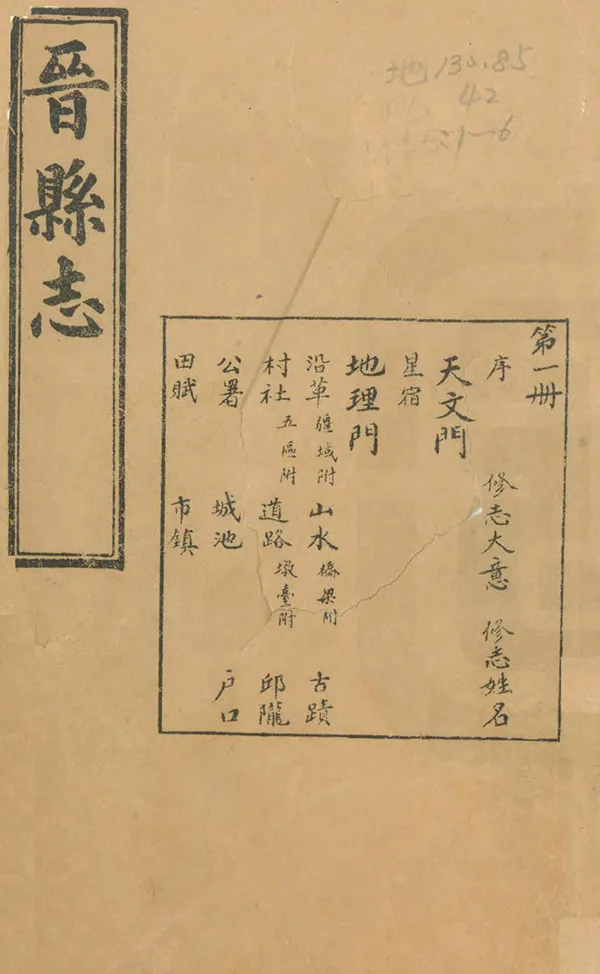 晉縣志
地130.85
42
:1-6
第一冊
序 修志大意 修志姓名
天文門
星宿
地理門
沿革 疆域附 山水 橋梁附 古蹟
村社 五區附 道路 墩臺附 邱隴
公署 城池 户口
田賦 市鎮